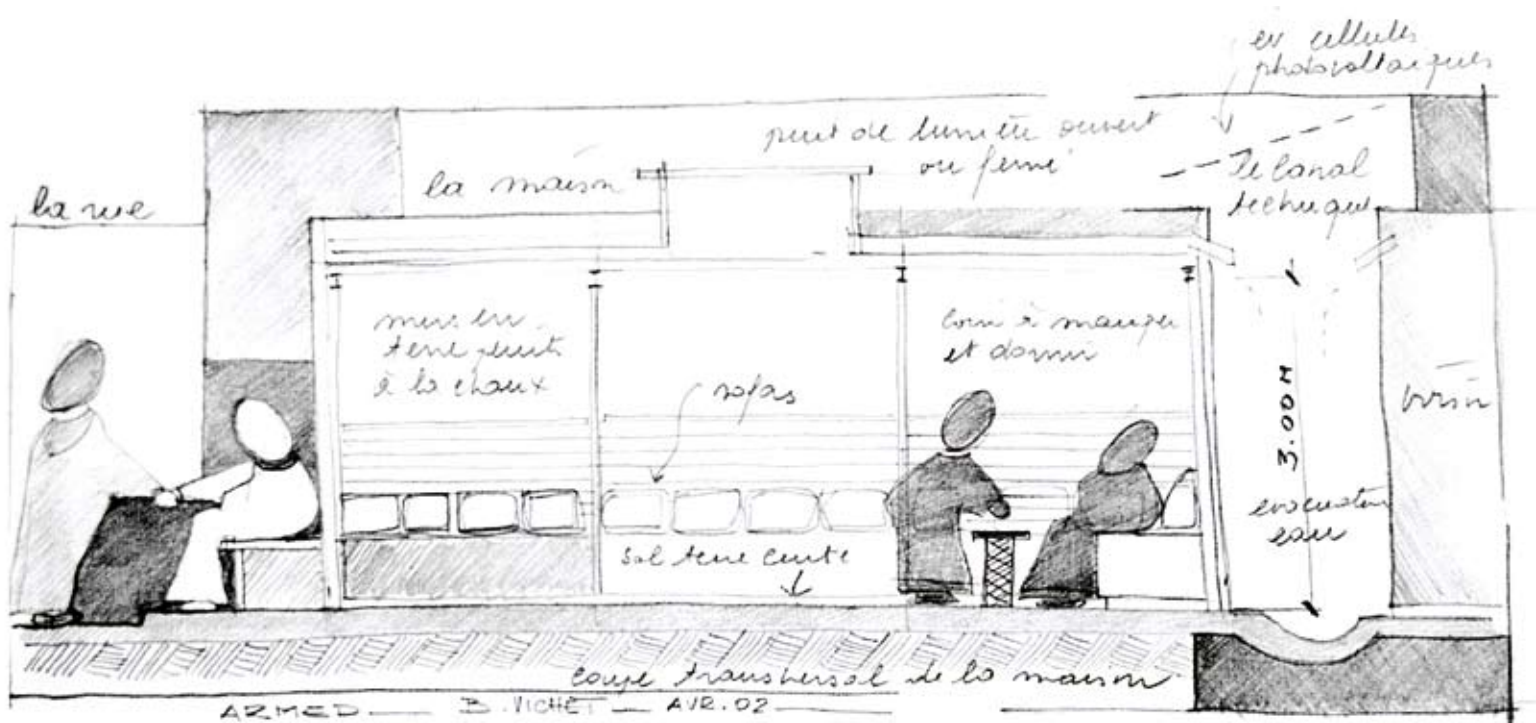 ex cellules
photovoltaiques
puit de lumière ouvert
ou fermé
la maison
le canal
technique
la rue
murs en
terre peints
à la chaux
coin à manger
et dormir
sofas
3.00 M
voisin
evacuation
eau
sol terre cuite
coupe transversal de la maison
ARMED B. VICHET AVR. 02